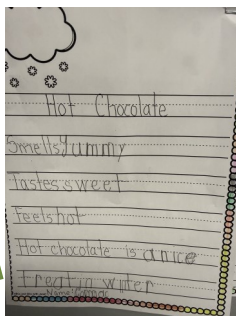 Hot Chocolate
Smells Yummy
Tastes sweet
Feels hot
Hot chocolate is a nice
Treat in winter